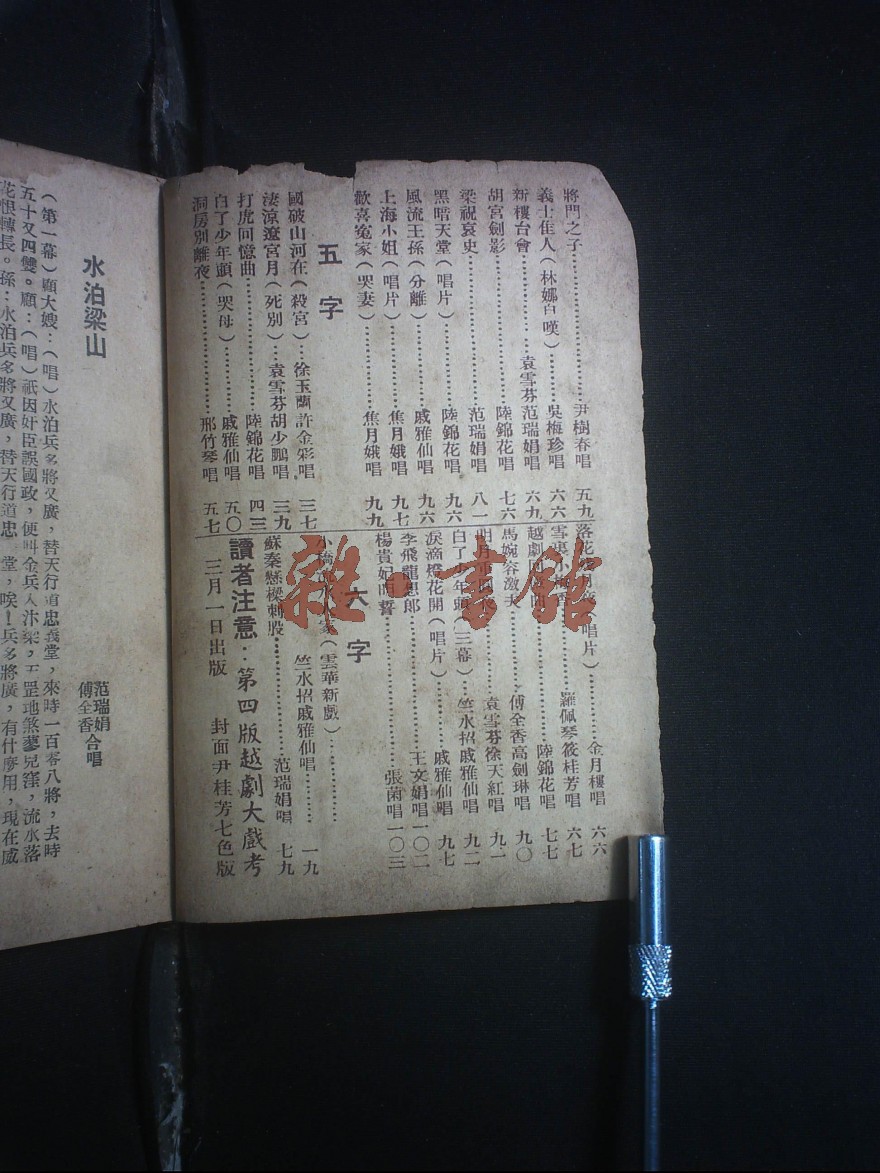 將門之子…………尹樹春唱 五九
義士佳人(林娜自嘆)……吳梅珍唱 六六
新樓台會…………袁雪芬范瑞娟唱 六九
胡宮劍影…………陸錦花唱 七六
梁祝哀史…………范瑞娟唱 八一
黑暗天堂(唱片)……陸錦花唱 九六
風流王孫(分離)……戚雅仙唱 九六
上海小姐(唱片)……焦月娥唱 九七
歡喜冤家(哭妻)……焦月娥唱 九九
五字
國破山河在(殺宮)…徐玉蘭許金彩唱 三七
淒涼遼宮月(死別)…袁雪芬胡少鵬唱 三九
打虎回憶曲…………陸錦花唱 四三
白了少年頭(哭母)……戚雅仙唱 五〇
洞房別離夜…………邢竹琴唱 五七
落花(唱片)……金月樓唱 六六
雪裏小梅香…………羅佩琴筱桂芳唱 六七
越劇…………陸錦花唱 七七
馬婉容激夫…………傅全香高劍琳唱 九〇
明月重圓…………袁雪芬徐天紅唱 九一
白了少年頭(三幕)…竺水招戚雅仙唱 九二
淚滴燈花開(唱片)……戚雅仙唱 九七
李飛龍想郎…………王文娟唱 一〇二
楊貴妃明誓…………張茵唱 一〇三
六字
小橋家(雲華新戲)…………
竺水招戚雅仙唱 一九
蘇秦懸樑刺股…………范瑞娟唱 七九
讀者注意:第四版越劇大戲考
三月一日出版 封面尹桂芳七色版
水泊梁山
范瑞娟
傅全香合唱
(第一幕)顧大嫂:(唱)水泊兵多將又廣,替天行道忠義堂,來時一百零八將,去時
五十又四雙。顧:(唱)祇因奸臣誤國政,便叫金兵入汴梁,罡地煞蓼兒窪,流水落
花恨轉長。孫:水泊兵多將又廣,替天行道忠 堂,唉!兵多將廣,有什麼用,現在威
雜·書館